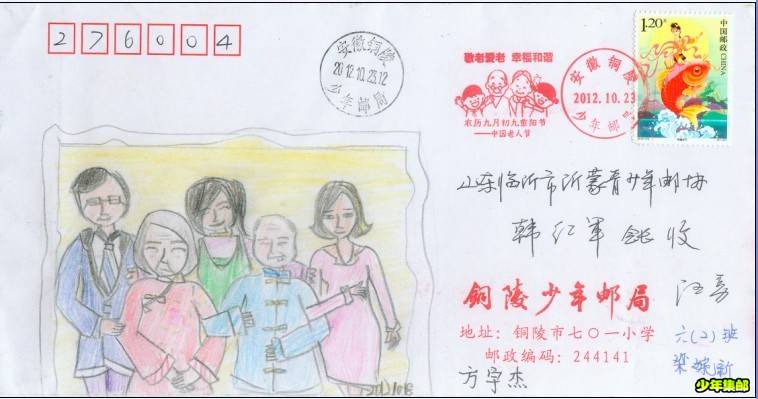 276004
安徽铜陵
2012.10.23.12
少年邮局
敬老爱老 幸福和谐
农历九月初九重阳节
——中国老人节
安徽铜陵
2012.10.23
少年邮局
1.20元
中国邮政
CHINA
山东临沂市沂蒙青少年邮协
韩红军 收
铜陵少年邮局
地址：铜陵市七〇一小学
邮政编码：244141
方宇杰
六(2)班
20121018
少年集邮